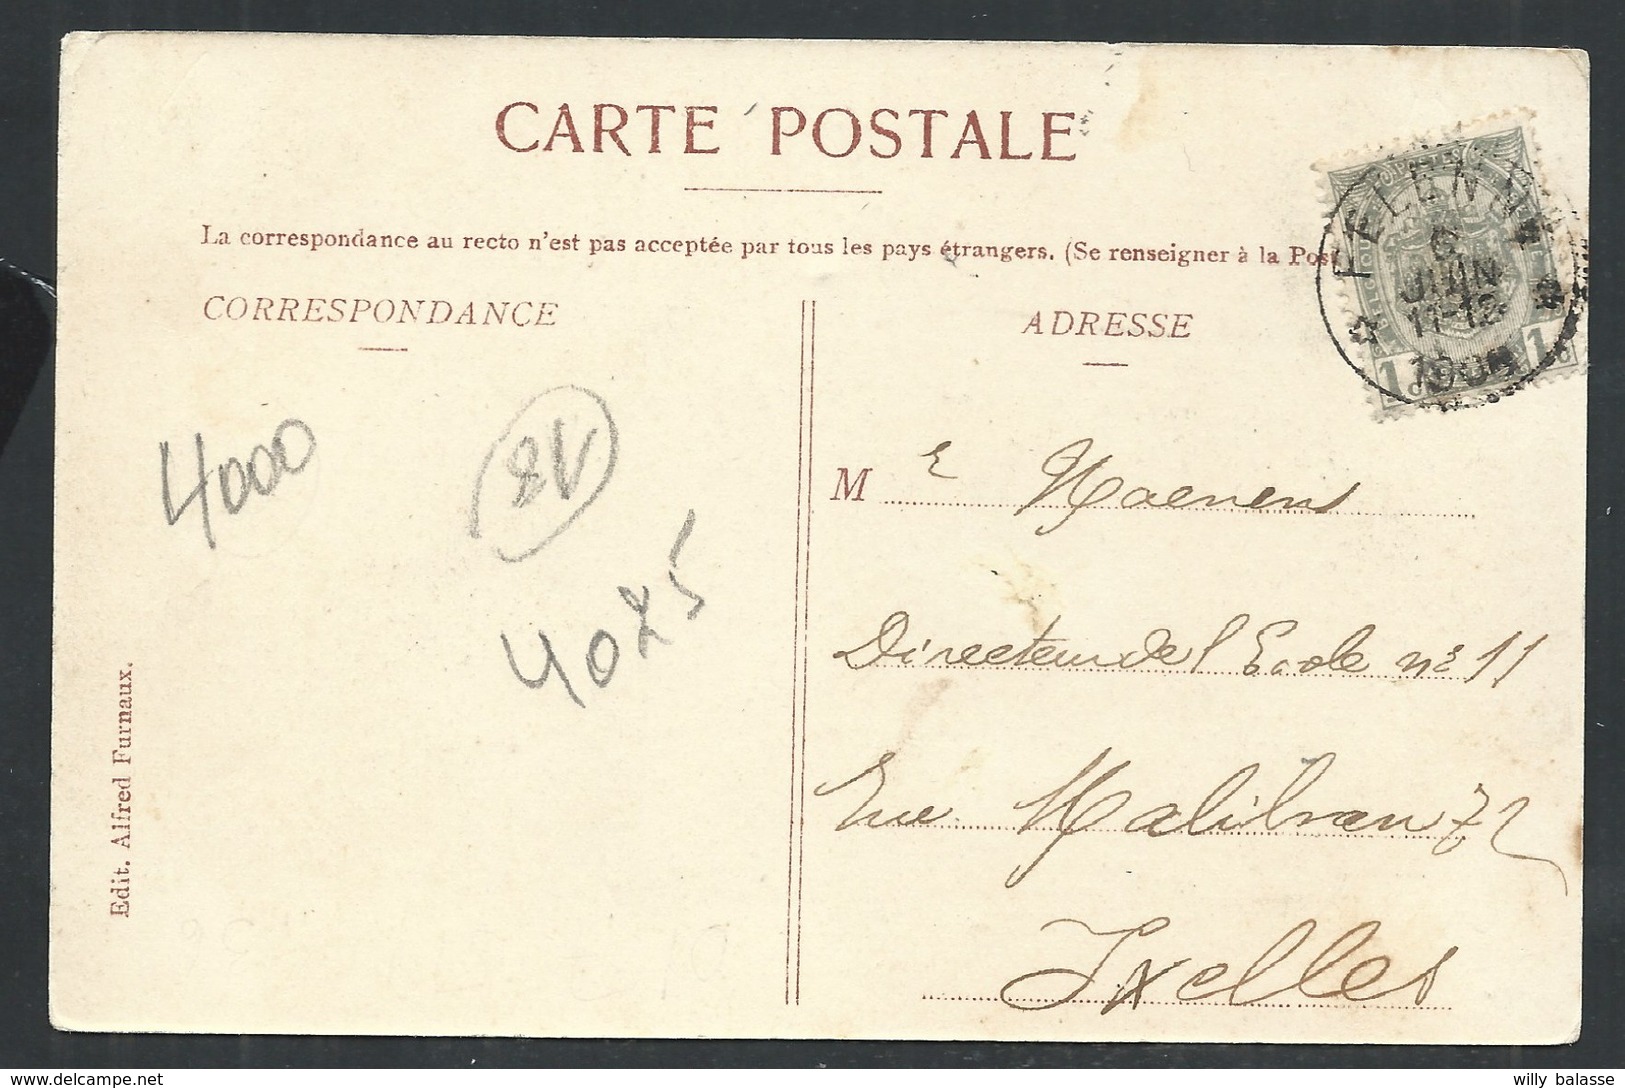 CARTE POSTALE
La correspondance au recto n'est pas acceptée par tous les pays étrangers. (Se renseigner à la Post
CORRESPONDANCE
ADRESSE
JUIN
11-12
1
1
4000
4025
M e Haenens
Directeur de l'Ecole n° 11
Rue Malibran 72
Ixelles
Edit. Alfred Furnaux.
willy balasse